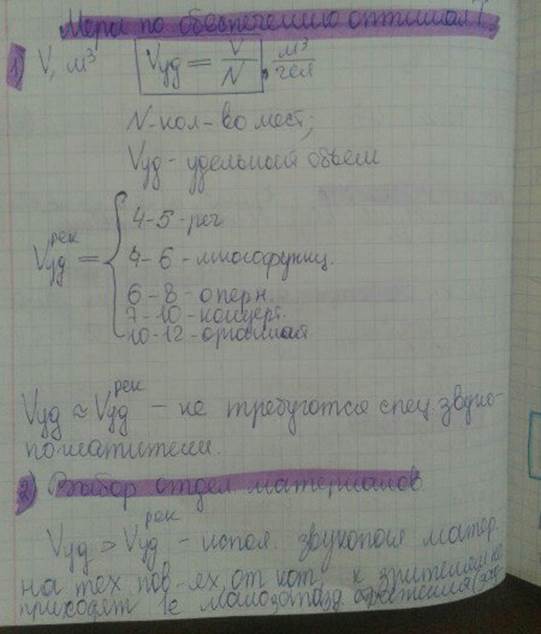 Меры по обеспечению оптимал T.
1) V, м³ Vуд = V/N, м³/чел
N - кол-во мест;
Vуд - удельный объем
Vуд рек = {
4-5 - реч
4-6 - многофункц.
6-8 - оперн.
7-10 - концерт.
10-12 - органная
Vуд ≈ Vуд рек - не требуются спец. звуко-
поглатители.
2) Выбор отдел материалов
Vуд > Vуд рек - испол. звукопогл матер.
на тех пов-ях, от кот. к зрителям не
приходят 1е малозапазд. отражения